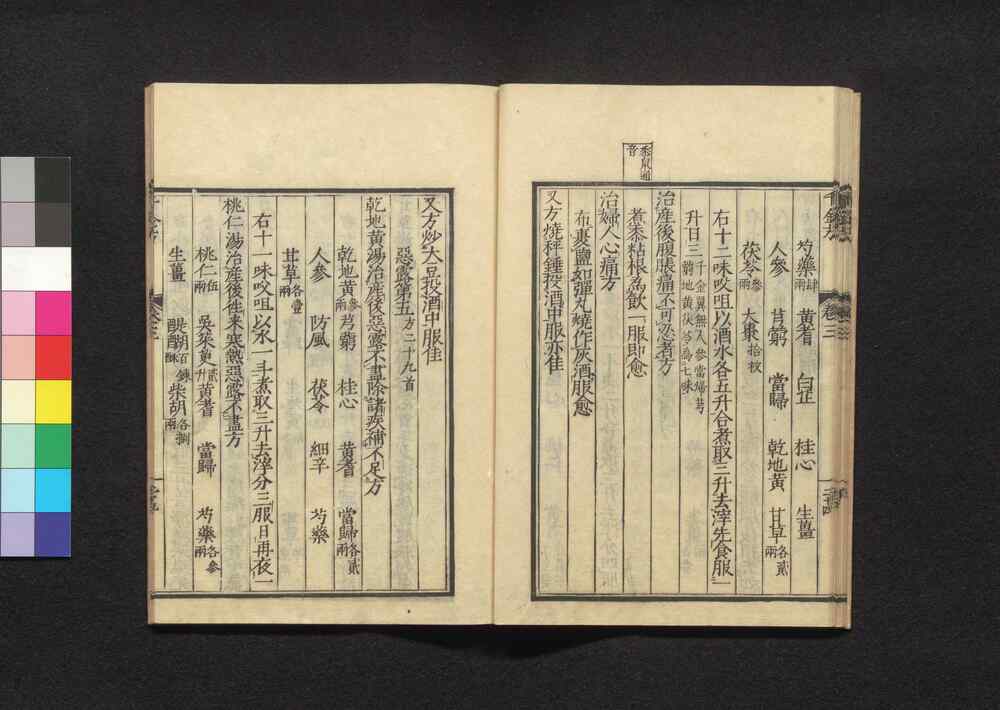 芍藥肆兩 黃耆 白芷 桂心 生薑
人參 芎藭 當歸 乾地黃 甘草各貳兩
茯苓參兩 大棗拾枚
右十二味㕮咀以酒水各五升合煮取三升去滓先食服一
升日三千金翼無人參當歸芎藭地黃茯苓爲七味
治產後腹脹痛不可忍者方
煮黍粘根爲飲一服即愈
治婦人心痛方
布裹鹽如彈丸燒作灰酒服愈
又方燒秤錘投酒中服亦佳
又方炒大豆投酒中服佳
惡露第五方二十九首
乾地黃湯治產後惡露不盡除諸疾補不足方
乾地黃參兩 芎藭 桂心 黃耆 當歸各貳兩
人參 防風 茯苓 細辛 芍藥
甘草各壹兩
右十一味㕮咀以水一斗煮取三升去滓分三服日再夜一
桃仁湯治產後往來寒熱惡露不盡方
桃仁伍兩 吳茱萸貳升 黃耆 當歸 芍藥各參兩
生薑 醍醐百鍊酥 柴胡各捌兩